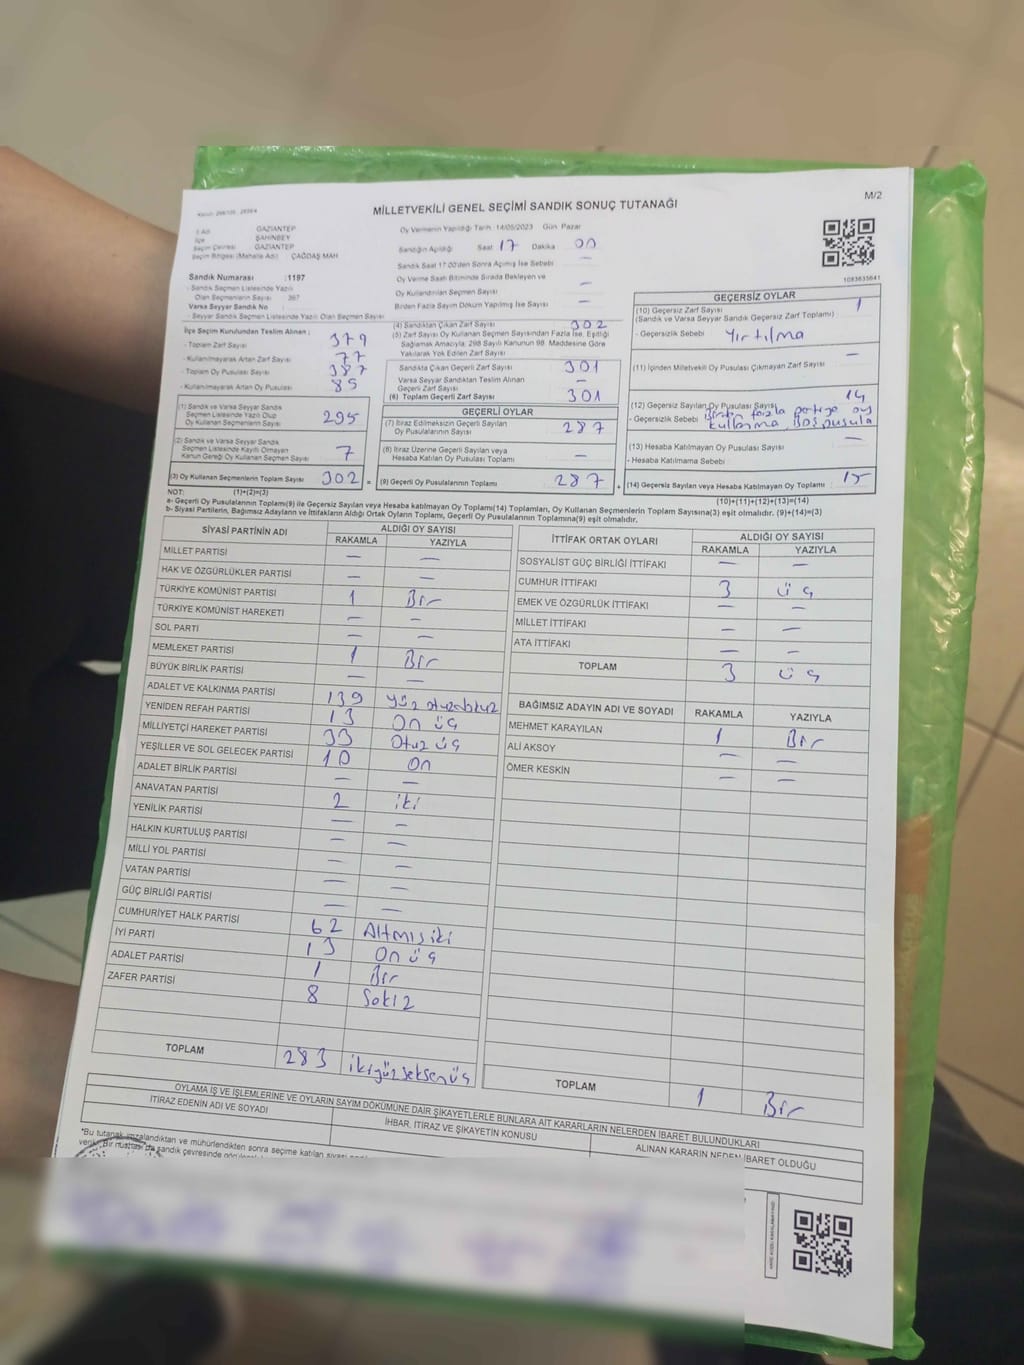 M/2
MİLLETVEKİLİ GENEL SEÇİMİ SANDIK SONUÇ TUTANAĞI
İl Adı GAZİANTEP
İlçe ŞAHİNBEY
Seçim Çevresi GAZİANTEP
Seçim Bölgesi (Mahalle Adı) ÇAĞDAŞ MAH
Sandık Numarası :1197
- Sandık Seçmen Listesinde Yazılı
Olan Seçmenlerin Sayısı 367
Varsa Seyyar Sandık No :
- Seyyar Sandık Seçmen Listesinde Yazılı Olan Seçmen Sayısı
Oy Vermenin Yapıldığı Tarih :14/05/2023 Gün Pazar
Sandığın Açıldığı Saat 17 Dakika 00
Sandık Saat 17:00'den Sonra Açılmış İse Sebebi —
Oy Verme Saati Bitiminde Sırada Bekleyen ve
Oy Kullandırılan Seçmen Sayısı —
Birden Fazla Sayım Döküm Yapılmış İse Sayısı —
1083635641
İlçe Seçim Kurulundan Teslim Alınan :
- Toplam Zarf Sayısı 379
- Kullanılmayarak Artan Zarf Sayısı 77
- Toplam Oy Pusulası Sayısı 387
- Kullanılmayarak Artan Oy Pusulası 85
(1) Sandık ve Varsa Seyyar Sandık
Seçmen Listesinde Yazılı Olup
Oy Kullanan Seçmenlerin Sayısı 295
(2) Sandık ve Varsa Seyyar Sandık
Seçmen Listesinde Kayıtlı Olmayan
Kanun Gereği Oy Kullanan Seçmen Sayısı 7
(3) Oy Kullanan Seçmenlerin Toplam Sayısı 302 =
(1)+(2)=(3)
(4) Sandıktan Çıkan Zarf Sayısı 302
(5) Zarf Sayısı Oy Kullanan Seçmen Sayısından Fazla İse, Eşitliği
Sağlamak Amacıyla, 298 Sayılı Kanunun 98. Maddesine Göre
Yakılarak Yok Edilen Zarf Sayısı
Sandıkta Çıkan Geçerli Zarf Sayısı 301
Varsa Seyyar Sandıktan Teslim Alınan
Geçerli Zarf Sayısı —
(6) Toplam Geçerli Zarf Sayısı 301
GEÇERLİ OYLAR
(7) İtiraz Edilmeksizin Geçerli Sayılan
Oy Pusulalarının Sayısı 287
(8) İtiraz Üzerine Geçerli Sayılan veya
Hesaba Katılan Oy Pusulası Toplamı —
(9) Geçerli Oy Pusulalarının Toplamı 287 +
GEÇERSİZ OYLAR
(10) Geçersiz Zarf Sayısı 1
(Sandık ve Varsa Seyyar Sandık Geçersiz Zarf Toplamı)
- Geçersizlik Sebebi Yırtılma
(11) İçinden Milletvekili Oy Pusulası Çıkmayan Zarf Sayısı —
(12) Geçersiz Sayılan Oy Pusulası Sayısı 14
- Geçersizlik Sebebi Birden fazla partiye oy
kullanma, Boş pusula
(13) Hesaba Katılmayan Oy Pusulası Sayısı —
- Hesaba Katılmama Sebebi
(14) Geçersiz Sayılan veya Hesaba Katılmayan Oy Toplamı 15
(10)+(11)+(12)+(13)=(14)
NOT:
a- Geçerli Oy Pusulalarının Toplamı(9) ile Geçersiz Sayılan veya Hesaba katılmayan Oy Toplamı(14) Toplamları, Oy Kullanan Seçmenlerin Toplam Sayısına(3) eşit olmalıdır. (9)+(14)=(3)
b- Siyasi Partilerin, Bağımsız Adayların ve İttifakların Aldığı Ortak Oyların Toplamı, Geçerli Oy Pusulalarının Toplamına(9) eşit olmalıdır.
SİYASİ PARTİNİN ADI ALDIĞI OY SAYISI
RAKAMLA YAZIYLA
MİLLET PARTİSİ — —
HAK VE ÖZGÜRLÜKLER PARTİSİ — —
TÜRKİYE KOMÜNİST PARTİSİ 1 Bir
TÜRKİYE KOMÜNİST HAREKETİ — —
SOL PARTİ — —
MEMLEKET PARTİSİ 1 Bir
BÜYÜK BİRLİK PARTİSİ — —
ADALET VE KALKINMA PARTİSİ 139 yüz otuzdokuz
YENİDEN REFAH PARTİSİ 13 On üç
MİLLİYETÇİ HAREKET PARTİSİ 33 Otuz üç
YEŞİLLER VE SOL GELECEK PARTİSİ 10 On
ADALET BİRLİK PARTİSİ — —
ANAVATAN PARTİSİ 2 iki
YENİLİK PARTİSİ — —
HALKIN KURTULUŞ PARTİSİ — —
MİLLİ YOL PARTİSİ — —
VATAN PARTİSİ — —
GÜÇ BİRLİĞİ PARTİSİ — —
CUMHURİYET HALK PARTİSİ 62 Altmış iki
İYİ PARTİ 13 On üç
ADALET PARTİSİ 1 Bir
ZAFER PARTİSİ 8 Sekiz
TOPLAM 283 ikiyüz seksen üç
İTTİFAK ORTAK OYLARI ALDIĞI OY SAYISI
RAKAMLA YAZIYLA
SOSYALİST GÜÇ BİRLİĞİ İTTİFAKI — —
CUMHUR İTTİFAKI 3 üç
EMEK VE ÖZGÜRLÜK İTTİFAKI — —
MİLLET İTTİFAKI — —
ATA İTTİFAKI — —
TOPLAM 3 üç
BAĞIMSIZ ADAYIN ADI VE SOYADI RAKAMLA YAZIYLA
MEHMET KARAYILAN 1 Bir
ALİ AKSOY — —
ÖMER KESKİN — —
TOPLAM 1 Bir
OYLAMA İŞ VE İŞLEMLERİNE VE OYLARIN SAYIM DÖKÜMÜNE DAİR ŞİKAYETLERLE BUNLARA AİT KARARLARIN NELERDEN İBARET BULUNDUKLARI
İTİRAZ EDENİN ADI VE SOYADI
İHBAR, İTİRAZ VE ŞİKAYETİN KONUSU
ALINAN KARARIN NEDEN İBARET OLDUĞU
*Bu tutanak imzalandıktan ve mühürlendikten sonra seçime katılan siyasi